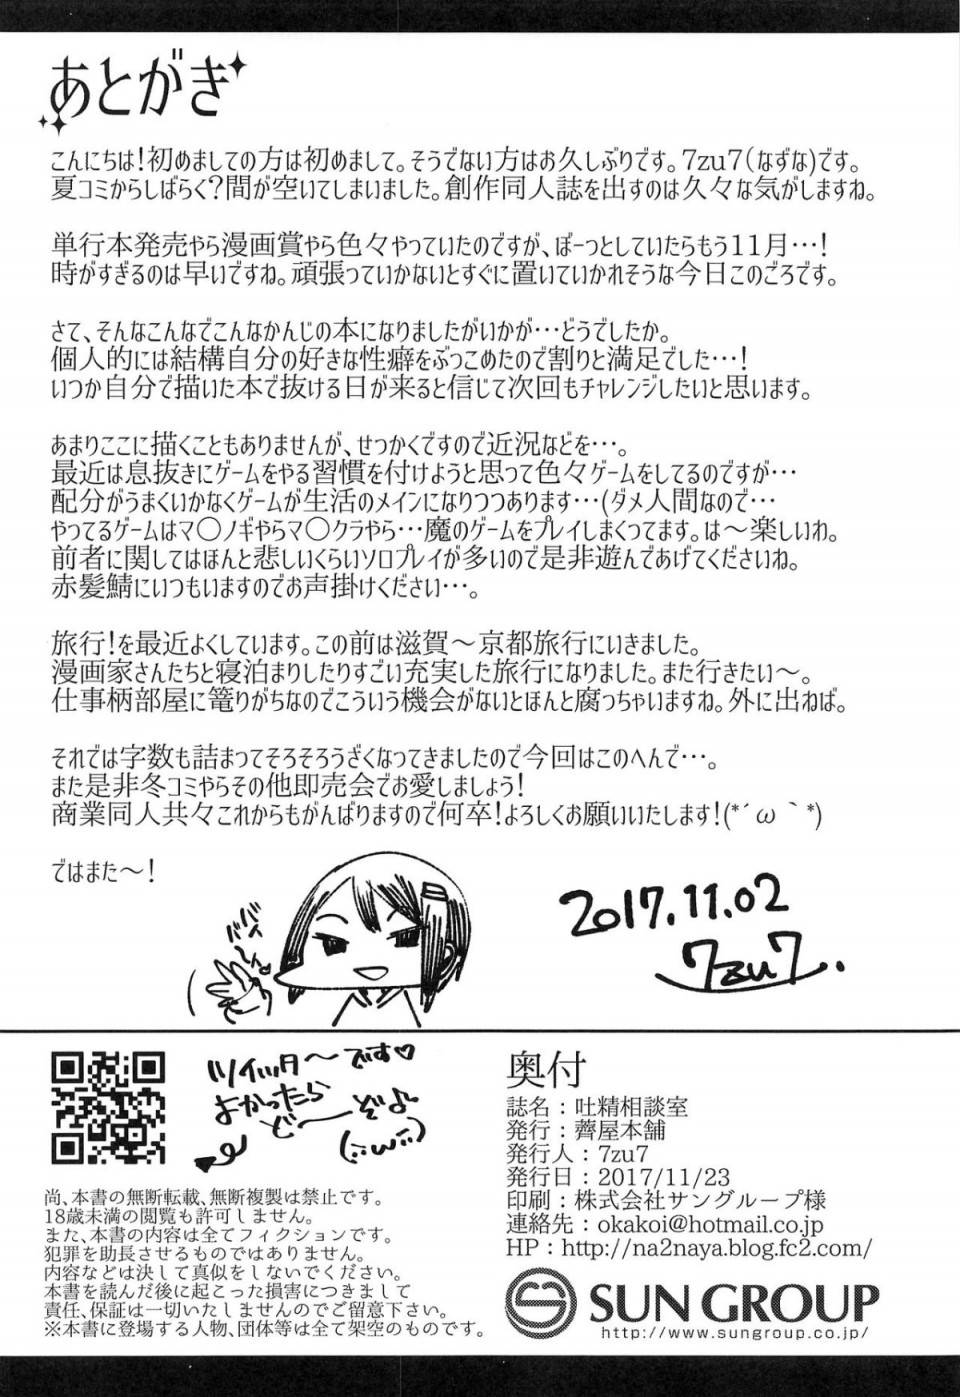 あとがき
こんにちは!初めましての方は初めまして。そうでない方はお久しぶりです。7zu7(なずな)です。
夏コミからしばらく?間が空いてしまいました。創作同人誌を出すのは久々な気がしますね。
単行本発売やら漫画賞やら色々やっていたのですが、ぼーっとしていたらもう11月…!
時がすぎるのは早いですね。頑張っていかないとすぐに置いていかれそうな今日このごろです。
さて、そんなこんなでこんなかんじの本になりましたがいかが…どうでしたか。
個人的には結構自分の好きな性癖をぶっこめたので割りと満足でした…!
いつか自分で描いた本で抜ける日が来ると信じて次回もチャレンジしたいと思います。
あまりここに描くこともありませんが、せっかくですので近況などを…。
最近は息抜きにゲームをやる習慣を付けようと思って色々ゲームをしてるのですが…
配分がうまくいかなくゲームが生活のメインになりつつあります…(ダメ人間なので…
やってるゲームはマ〇ノギやらマ〇クラやら…魔のゲームをプレイしまくってます。は〜楽しいわ。
前者に関してはほんと悲しいくらいソロプレイが多いので是非遊んであげてくださいね。
赤髪鯖にいつもいますのでお声掛けください…。
旅行!を最近よくしています。この前は滋賀〜京都旅行にいきました。
漫画家さんたちと寝泊まりしたりすごい充実した旅行になりました。また行きたい〜。
仕事柄部屋に篭りがちなのでこういう機会がないとほんと腐っちゃいますね。外に出ねば。
それでは字数も詰まってそろそろうざくなってきましたので今回はこのへんで…。
また是非冬コミやらその他即売会でお愛しましょう!
商業同人共々これからもがんばりますので何卒!よろしくお願いいたします!(*´ω｀*)
ではまた〜!
2017.11.02
7zu7.
ツイッターです♡
よかったら
どーぞよ
(;;ω;;)
尚、本書の無断転載、無断複製は禁止です。
18歳未満の閲覧も許可しません。
また、本書の内容は全てフィクションです。
犯罪を助長させるものではありません。
内容などは決して真似をしないでください。
本書を読んだ後に起こった損害につきまして
責任、保証は一切いたしませんのでご留意下さい。
※本書に登場する人物、団体等は全て架空のものです。
奥付
誌名：吐精相談室
発行：薺屋本舗
発行人：7zu7
発行日：2017/11/23
印刷：株式会社サングループ様
連絡先：okakoi@hotmail.co.jp
HP：http://na2naya.blog.fc2.com/
SUN GROUP
http://www.sungroup.co.jp/